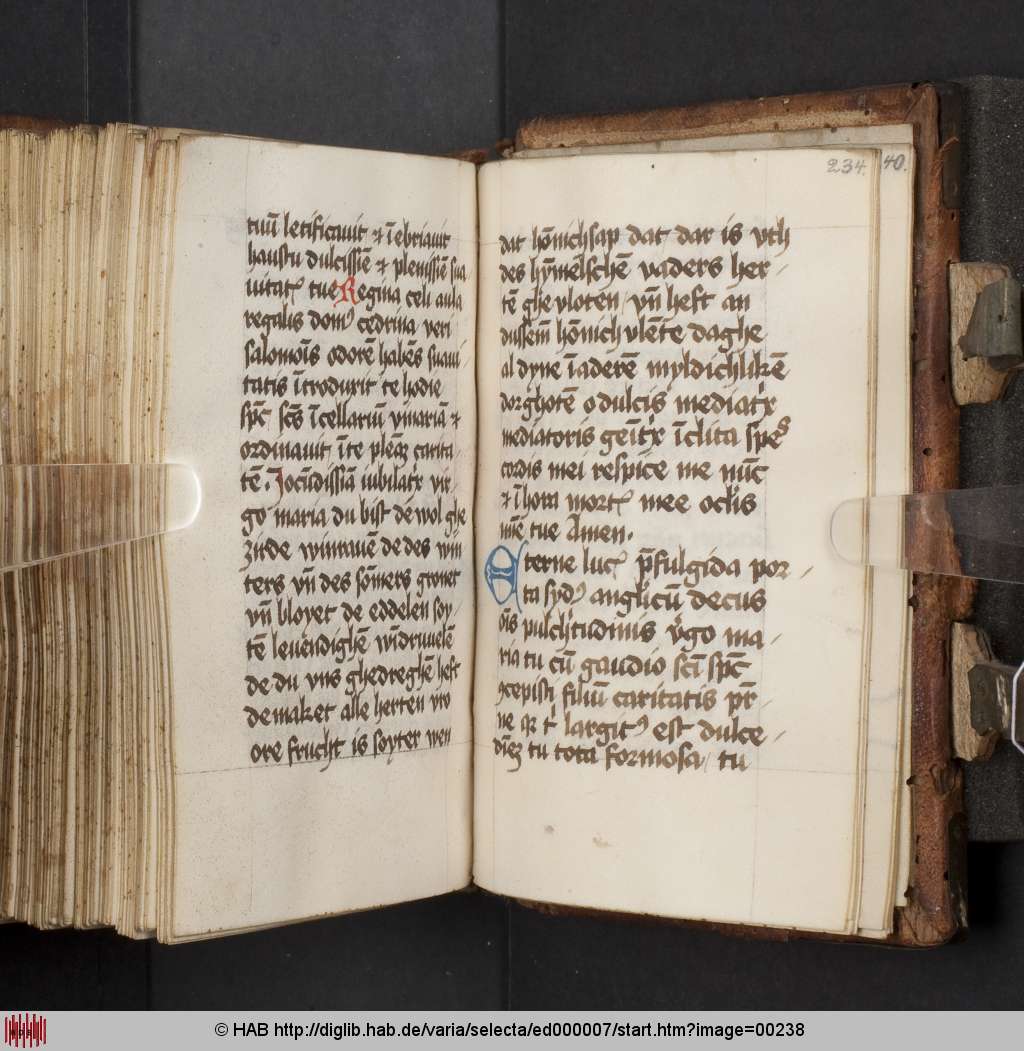 tuū letificauit et īebriauit
haustu dulcissīe et plenissīe sua
uitatꝭ tue Regina celi aula
regalis domꝰ cedrina veri
salomōis odorē habēs suaui
tatis ītroduxit te hodie
spūs scūs ī cellariū vinariā et
ordinauit ī te plenā carita-
tē. Jocūdissīa iubilatͥx vir-
go maria du bist de wol ghe
zirde winraue de des win
ters vn̄ des sōmers gronet
vn̄ bloyet de eddelen soy-
tē leuēdighē wīdruuelē
de du vns ghedreghē heft
de maket alle herten vro
ore frucht is soyter wen
234.
40.
dat hōnichsap dat dar is vth
des hȳmelschē vaders her-
tē ghevloten vn̄ heft an
dussem hōnich vlete daghe
al dyne īaderē myldichlikē
dorghotē o dulcis mediatͥx
mediatoris genitͥx īclita spes
cordis mei respice me nūc
et ī hora mortꝭ mee oclis
mīe tue Amen.
Eterne lucꝭ p̄fulgida por-
ta sydꝰ anglicū decus
oīs pulchͥtudinis vͥgo ma-
ria tu cū gaudio scī spūs
ꝯcepisti filiū caritatis pr̄-
ne qͥ tͥ largitꝰ est dulce-
dīeꝫ tu tota formosa / tu
© HAB http://diglib.hab.de/varia/selecta/ed000007/start.htm?image=00238